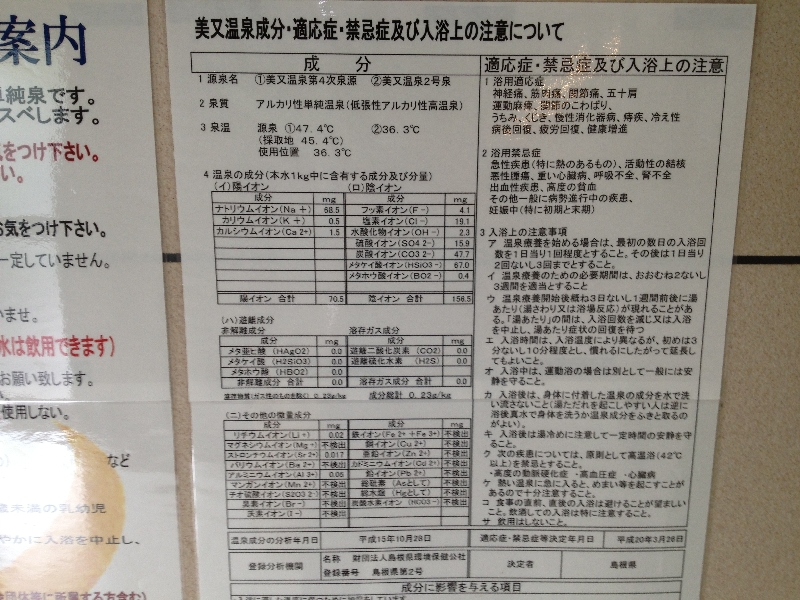 案内
単純泉です。
スベします。
気をつけ下さい。
い。
お気をつけ下さい。
一定していません。
いませ。
水は飲用できます)
お願い致します。
使用しない。
など
歳未満の乳幼児
やかに入浴を中止し、
美又温泉成分・適応症・禁忌症及び入浴上の注意について
成 分
1 源泉名 ①美又温泉第4次泉源 ②美又温泉2号泉
2 泉質 アルカリ性単純温泉(低張性アルカリ性高温泉)
3 泉温 源泉 ①47.4℃ ②36.3℃
(採取地 45.4℃)
使用位置 36.3℃
4 温泉の成分(本水1kg中に含有する成分及び分量)
(イ)陽イオン (ロ)陰イオン
成分 mg 成分 mg
ナトリウムイオン(Na +) 68.5 フッ素イオン(F -) 4.1
カリウムイオン(K +) 0.5 塩素イオン(Cl -) 19.1
カルシウムイオン(Ca 2+) 1.5 水酸化物イオン(OH -) 2.3
硫酸イオン(SO4 2-) 15.9
炭酸イオン(CO3 2-) 47.7
メタケイ酸イオン(HSiO3 -) 67.0
メタホウ酸イオン(BO2 -) 0.4
陽イオン 合計 70.5 陰イオン 合計 156.5
(ハ)遊離成分
非解離成分 溶存ガス成分
成分 mg 成分 mg
メタ亜ヒ酸 (HAgO2) 0.0 遊離二酸化炭素 (CO2) 0.0
メタケイ酸 (H2SiO3) 0.0 遊離硫化水素 (H2S) 0.0
メタホウ酸 (HBO2) 0.0
非解離成分 合計 0.0 溶存ガス成分 合計 0.0
成分総計 0.23g/kg
(ニ)その他の微量成分
成分 mg 成分 mg
リチウムイオン(Li +) 0.02 鉄イオン(Fe 2+ +Fe 3+) 不検出
マグネシウムイオン(Mg +) 不検出 銅イオン(Cu 2+) 不検出
ストロンチウムイオン(Sr 2+) 0.017 亜鉛イオン(Zn 2+) 不検出
バリウムイオン(Ba 2+) 不検出 カドミニウムイオン(Cd 2+) 不検出
アルミニウムイオン(Al 3+) 0.05 鉛イオン(Pb 2+) 不検出
マンガンイオン(Mn 2+) 不検出 総砒素 (Asとして) 不検出
チオ硫酸イオン(S2O3 2-) 不検出 総水銀 (Hgとして) 不検出
臭素イオン(Br -) 不検出 炭酸水素イオン (HCO3 -) 不検出
沃素イオン(I -) 不検出
適応症・禁忌症及び入浴上の注意
1 浴用適応症
神経痛、筋肉痛、関節痛、五十肩
運動麻痺、関節のこわばり、
うちみ、くじき、慢性消化器病、痔疾、冷え性
病後回復、疲労回復、健康増進
2 浴用禁忌症
急性疾患(特に熱のあるもの)、活動性の結核
悪性腫瘍、重い心臓病、呼吸不全、腎不全
出血性疾患、高度の貧血
その他一般に病勢進行中の疾患、
妊娠中(特に初期と末期)
3 入浴上の注意事項
ア 温泉療養を始める場合は、最初の数日の入浴回
数を1日当り1回程度とすること。その後は1日当り
2回ないし3回までとすること。
イ 温泉療養のための必要期間は、おおむね2ないし
3週間を適当とすること
ウ 温泉療養開始後概ね3日ないし1週間前後に湯
あたり(湯さわり又は浴場反応)が現れることがあ
る。「湯あたり」の間は、入浴回数を減じ又は入浴
を中止し、湯あたり症状の回復を待つ
エ 入浴時間は、入浴温度により異なるが、初めは3
分ないし10分程度とし、慣れるにしたがって延長し
てもよいこと。
オ 入浴中は、運動浴の場合は別として一般には安
静を守ること。
カ 入浴後は、身体に付着した温泉の成分を水で洗
い流さないこと(湯ただれを起こしやすい人は逆に
浴後真水で身体を洗うか温泉成分をふきと取るの
がよい)。
キ 入浴後は湯冷めに注意して一定時間の安静を守
ること。
ク 次の疾患については、原則として高温浴(42℃
以上)を禁忌とすること。
・高度の動脈硬化症 ・高血圧症 ・心臓病
ケ 熱い温泉に急に入ると、めまい等を起こすことが
あるので十分注意すること。
コ 食事の直前、直後の入浴は避けることが望まし
こと。飲酒しての入浴は特に注意すること。
サ 飲用はしないこと。
温泉成分の分析年月日 平成15年10月28日 適応症・禁忌症等決定年月日 平成20年3月26日
登録分析機関 名称 財団法人島根県環境保健公社 決定者 島根県
登録番号 島根県第2号
成分に影響を与える項目